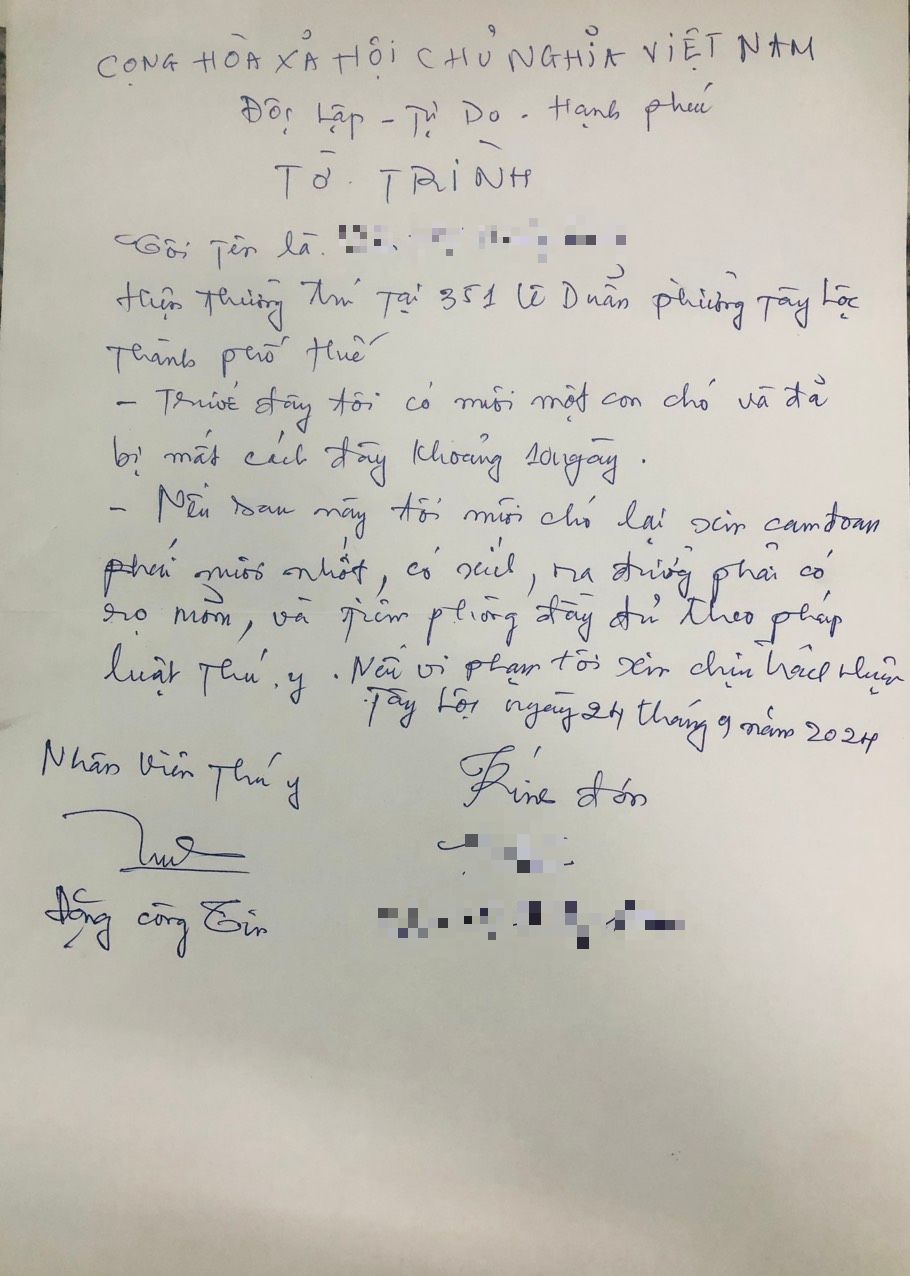 CỌNG HÒA XẢ HỘI CHỦ NGHĨA VIỆT NAM
Độc Lập - Tự Do - Hạnh phúc
TỜ TRÌNH
Tôi Tên là.
Hiện Thường Trú Tại 351 Lê Duẩn phường Tây Lộc
Thành phố Huế
- Trước đây tôi có nuôi một con chó và đã
bị mất cách đây khoảng 10 ngày.
- Nếu sau này tôi nuôi chó lại xin cam đoan
phải nuôi nhốt, có xích, ra đường phải có
rọ mồm, và tiêm phòng đầy đủ theo pháp
luật Thú y. Nếu vi phạm tôi xin chịu trách nhiệm
Tây Lộc ngày 24 tháng 9 năm 2024
Nhân Viên Thú y
Kính đơn
Đặng công Tín